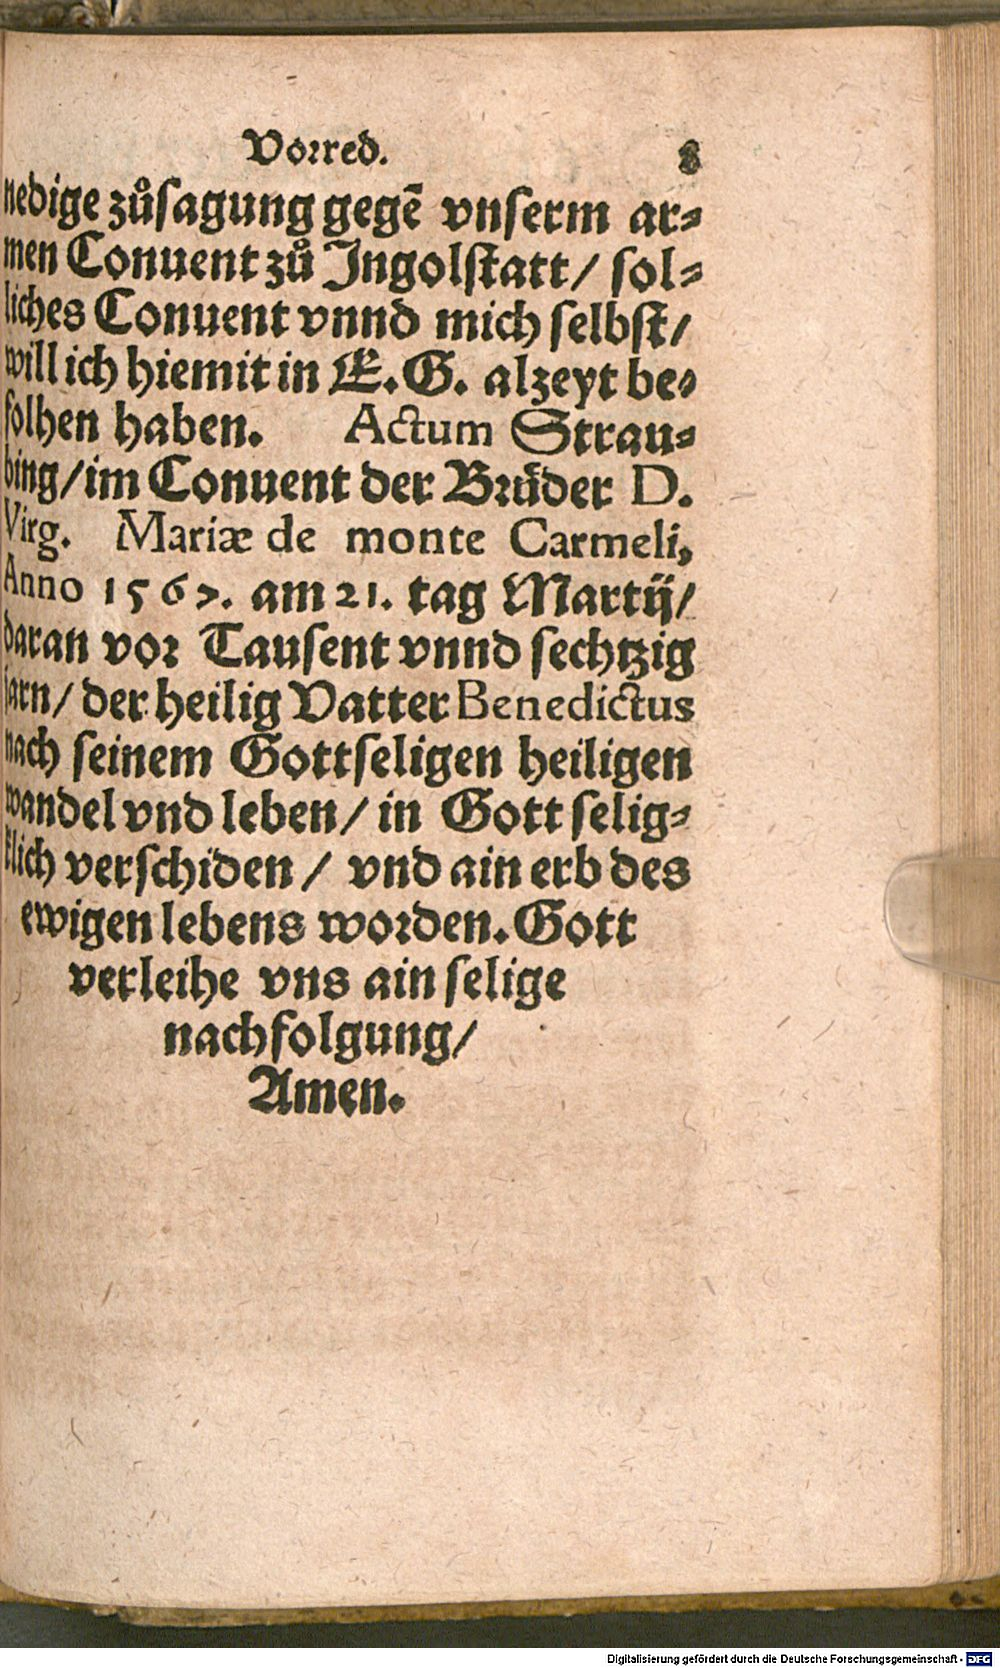 Vorred. 8
nedige zůsagung gegē vnserm ar⸗
men Conuent zů Ingolstatt/ sol⸗
liches Conuent vnnd mich selbst/
will ich hiemit in E.G. alzeyt be⸗
folhen haben. Actum Strau⸗
bing/im Conuent der Brůder D.
Virg. Mariæ de monte Carmeli,
Anno 1567. am 21. tag Martij/
daran vor Tausent vnnd sechtzig
jarn/ der heilig Vatter Benedictus
nach seinem Gottseligen heiligen
wandel vnd leben/ in Gott selig⸗
klich verschiden/ vnd ain erb des
ewigen lebens worden. Gott
verleihe vns ain selige
nachfolgung/
Amen.
Digitalisierung gefördert durch die Deutsche Forschungsgemeinschaft - DFG